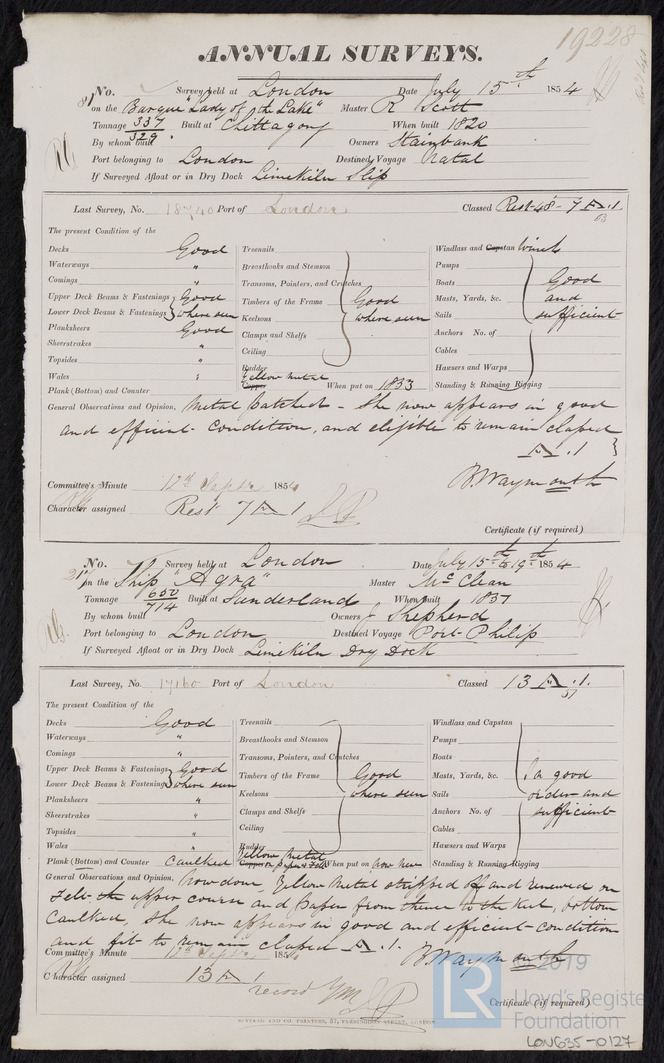 19228
ANNUAL SURVEYS.
No. 81 Survey held at London Date July 15th 1854
on the Barque "Lady of the Lake" Master R Scott
Tonnage 337 Built at Chittagong When built 1820
329
By whom built Owners Stainbank
Port belonging to London Destined Voyage Natal
If Surveyed Afloat or in Dry Dock Limekiln Slip
Last Survey, No. 18740 Port of London Classed Rest-48-7 A.1
53
The present Condition of the
Decks Good Treenails Windlass and Capstan Winch
Waterways " Breasthooks and Stemson Pumps
Comings " Transoms, Pointers, and Crutches Boats Good
Upper Deck Beams & Fastenings Good Timbers of the Frame Good Masts, Yards, &c. and
Lower Deck Beams & Fastenings where seen Keelsons where seen Sails sufficient
Planksheers Good Clamps and Shelfs Anchors No. of
Sheerstrakes " Ceiling Cables
Topsides " Rudder Hawsers and Warps
Wales " Yellow Metal Copper When put on 1853 Standing & Running Rigging
Plank (Bottom) and Counter
General Observations and Opinion, Metal Patched - She now appears in good
and efficient condition, and eligible to remain classed
A.1
Committee's Minute 12th Septr. 1854 B. Waymouth
Character assigned Rest 7 A 1
Certificate (if required)
No. 217 Survey held at London Date July 15th to 19th 1854
on the Ship "Agra" Master McClean
Tonnage 650 Built at Sunderland When Built 1837
714
By whom built Owners J Shepherd
Port belonging to London Destined Voyage Port Philip
If Surveyed Afloat or in Dry Dock Limekiln Dry Dock
Last Survey, No. 17160 Port of London Classed 13 A.1.
51
The present Condition of the
Decks Good Treenails Windlass and Capstan
Waterways " Breasthooks and Stemson Pumps
Comings " Transoms, Pointers, and Crutches Boats
Upper Deck Beams & Fastenings Good Timbers of the Frame Good Masts, Yards, &c. In good
Lower Deck Beams & Fastenings where seen Keelsons where seen Sails order and
Planksheers " Clamps and Shelfs Anchors No. of sufficient
Sheerstrakes " Ceiling Cables
Topsides " Rudder Hawsers and Warps
Wales " Yellow Metal
Plank (Bottom) and Counter Caulked Copper on paper & Felt When put on now new Standing & Running Rigging
General Observations and Opinion, Now done, Yellow Metal stripped off and renewed on
Felt the upper course and Paper from thence to the Keel, bottom
Caulked. She now appears in good and efficient condition
and fit to remain classed A.1.
Committee's Minute 12th Septr. 1854 B. Waymouth
Character assigned 13 A 1
record YM
Certificate (if required)
LR © 2019
Lloyd's Register
Foundation
LON635-0127